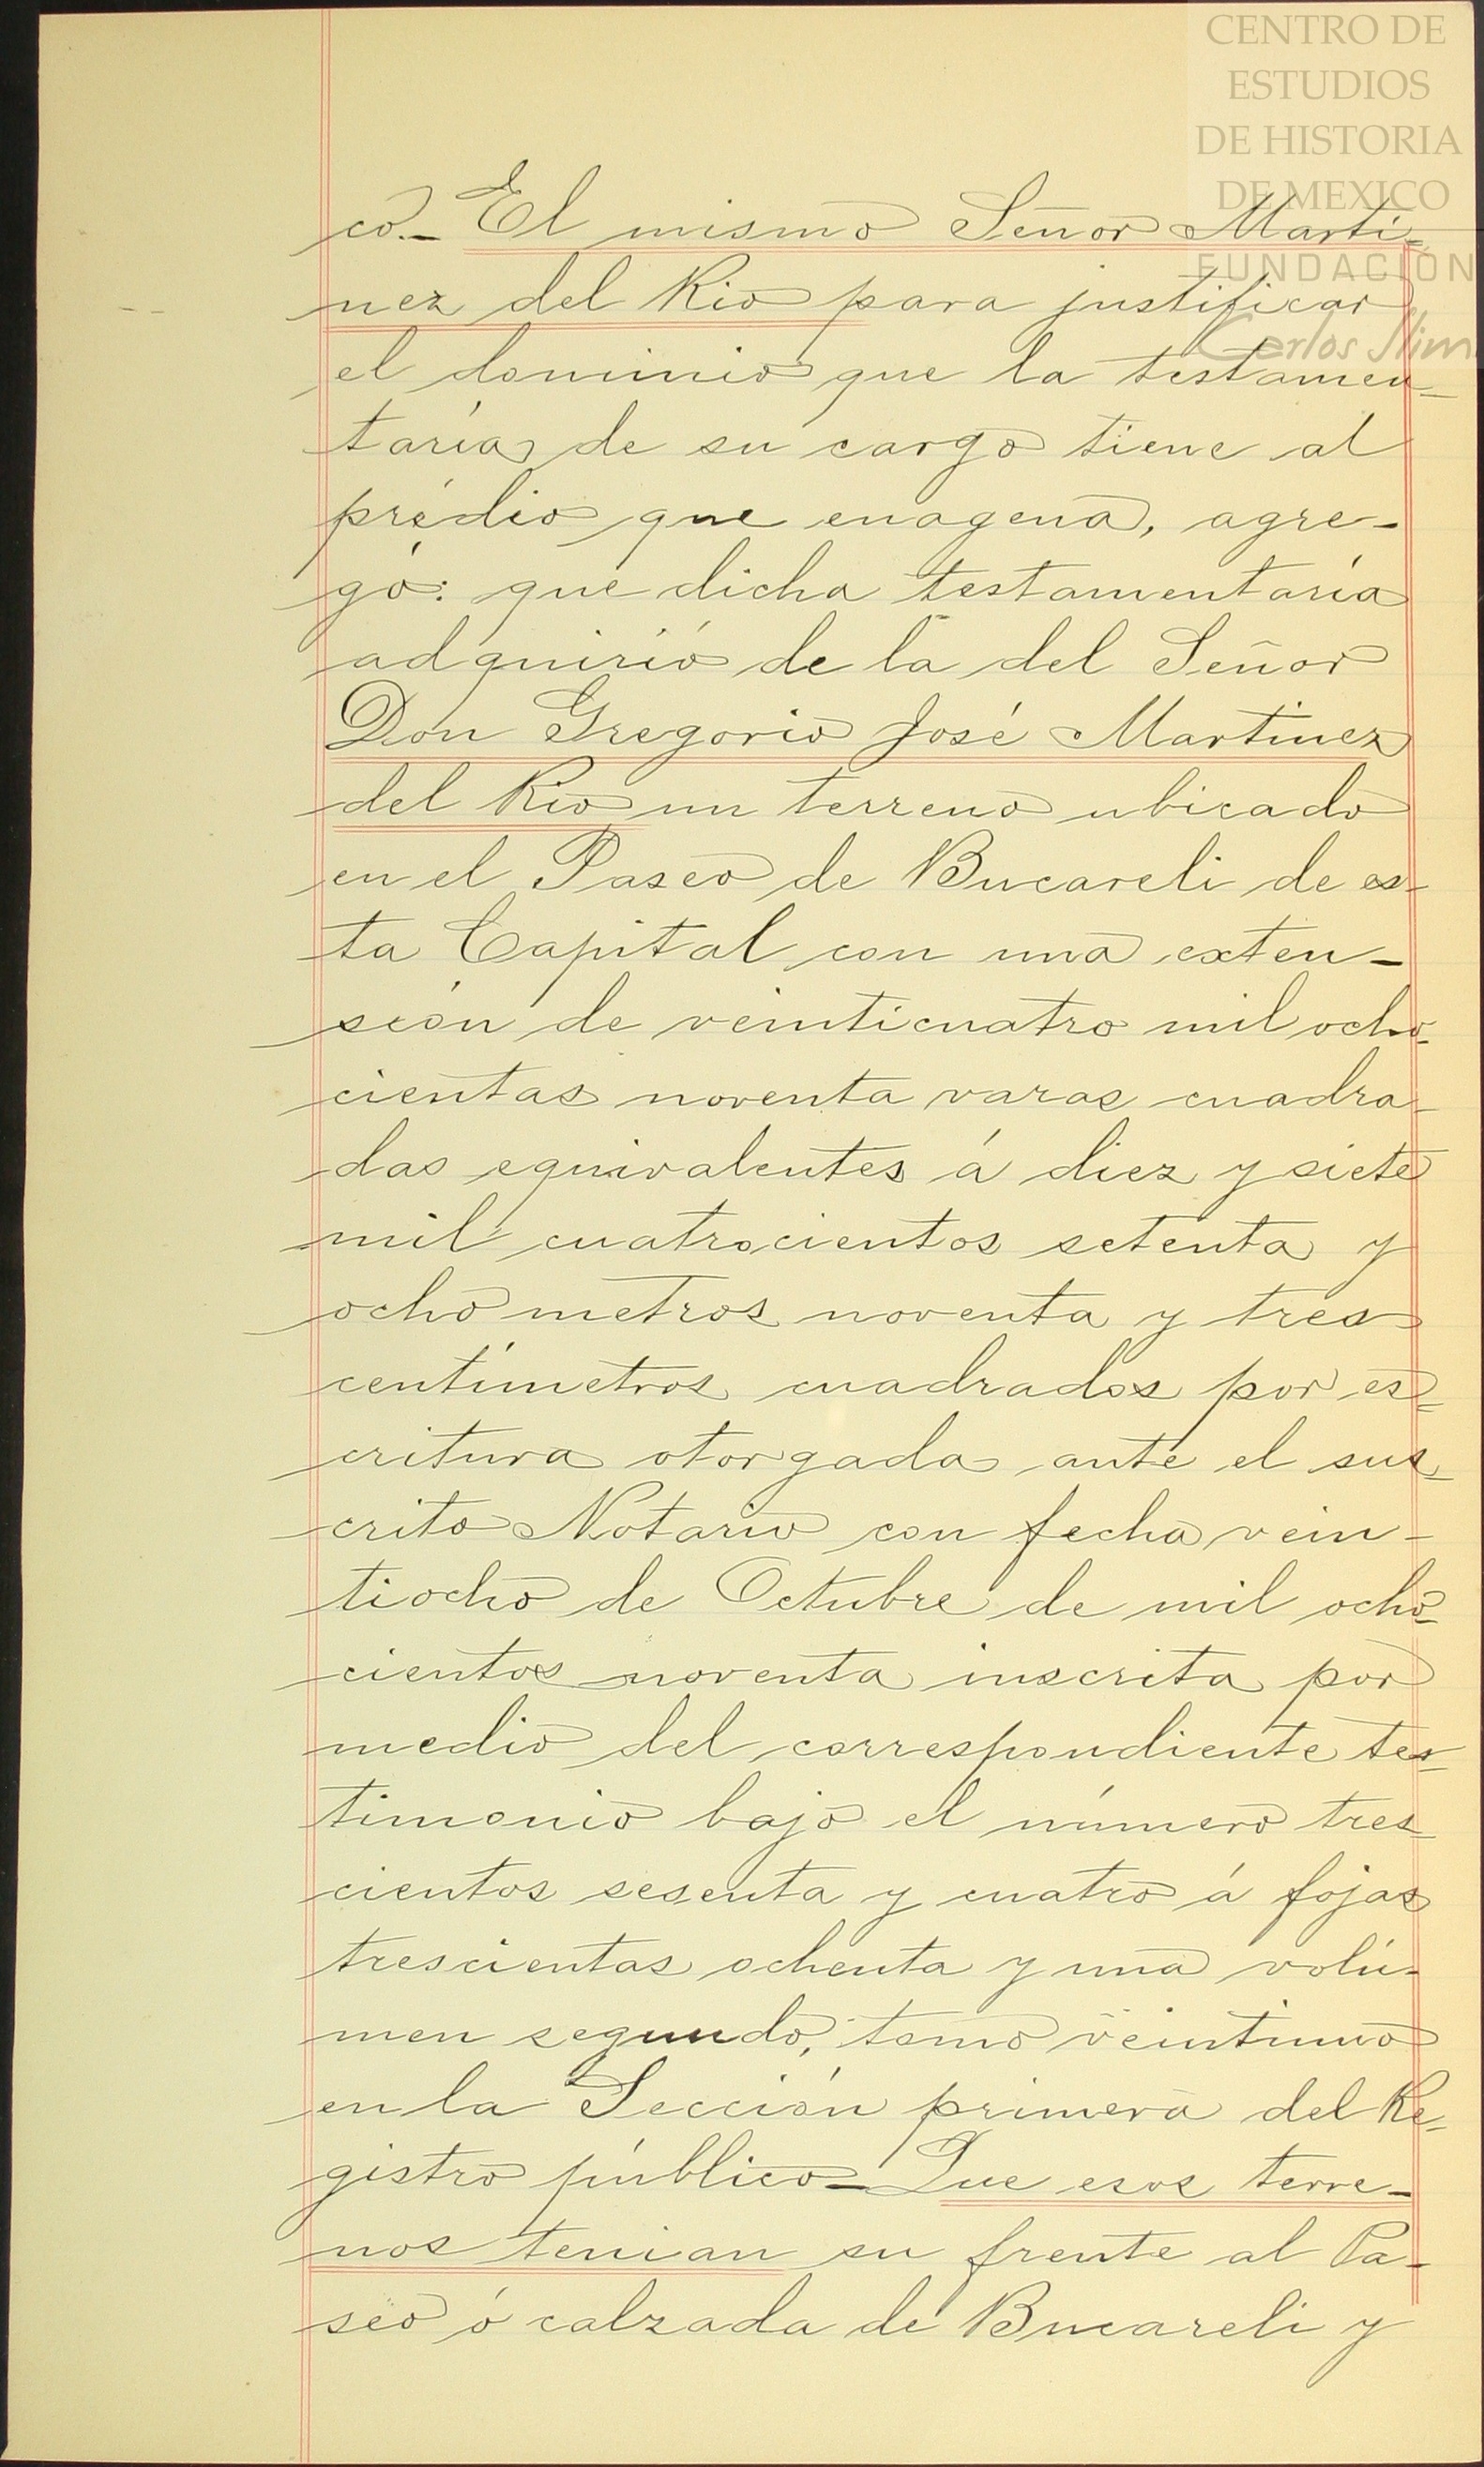 CENTRO DE
ESTUDIOS
DE HISTORIA
DE MEXICO
FUNDACIÓN
Carlos Slim
co.- El mismo Señor Marti-
nez del Rio para justificar
el dominio que la testamen-
taría de su cargo tiene al
prédio que enagena, agre-
gó: que dicha testamentaría
adquirió de la del Señor
Don Gregorio José Martinez
del Rio un terreno ubicado
en el Paseo de Bucareli de es-
ta Capital con una exten-
sión de veinticuatro mil ocho-
cientas noventa varas cuadra-
das equivalentes á diez y siete
mil cuatrocientos setenta y
ocho metros noventa y tres
centímetros cuadrados por es-
critura otorgada ante el sus-
crito Notario con fecha vein-
tiocho de Octubre de mil ocho-
cientos noventa inscrita por
medio del correspondiente tes-
timonio bajo el número tres-
cientos sesenta y cuatro á fojas
trescientas ochenta y una volú-
men segundo, tomo veintiuno
en la Sección primera del Re-
gistro público - Que esos terre-
nos tenian su frente al Pa-
seo ó calzada de Bucareli y